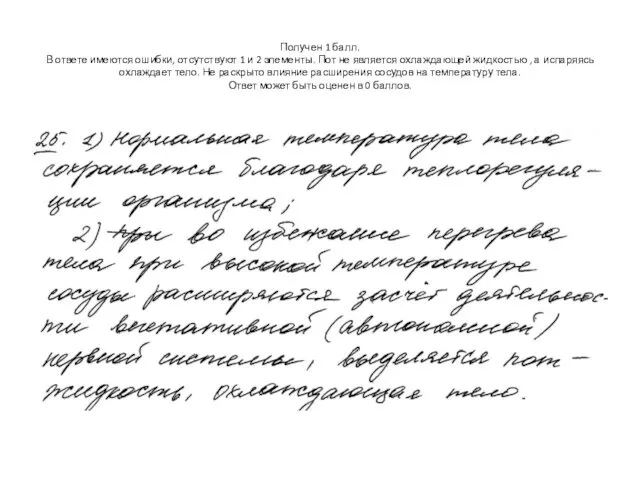 Получен 1 балл.
В ответе имеются ошибки, отсутствуют 1 и 2 элементы. Пот не является охлаждающей жидкостью , а испаряясь
охлаждает тело. Не раскрыто влияние расширения сосудов на температуру тела.
Ответ может быть оценен в 0 баллов.
25. 1) Нормальная температура тела
сохраняется благодаря теплорегуля-
ции организма;
2) при во избежание перегрева
тела при высокой температуре
сосуды расширяются засчёт деятельнос-
ти вегетативной (автономной)
нервной системы, выделяется пот -
жидкость, охлаждающая тело.